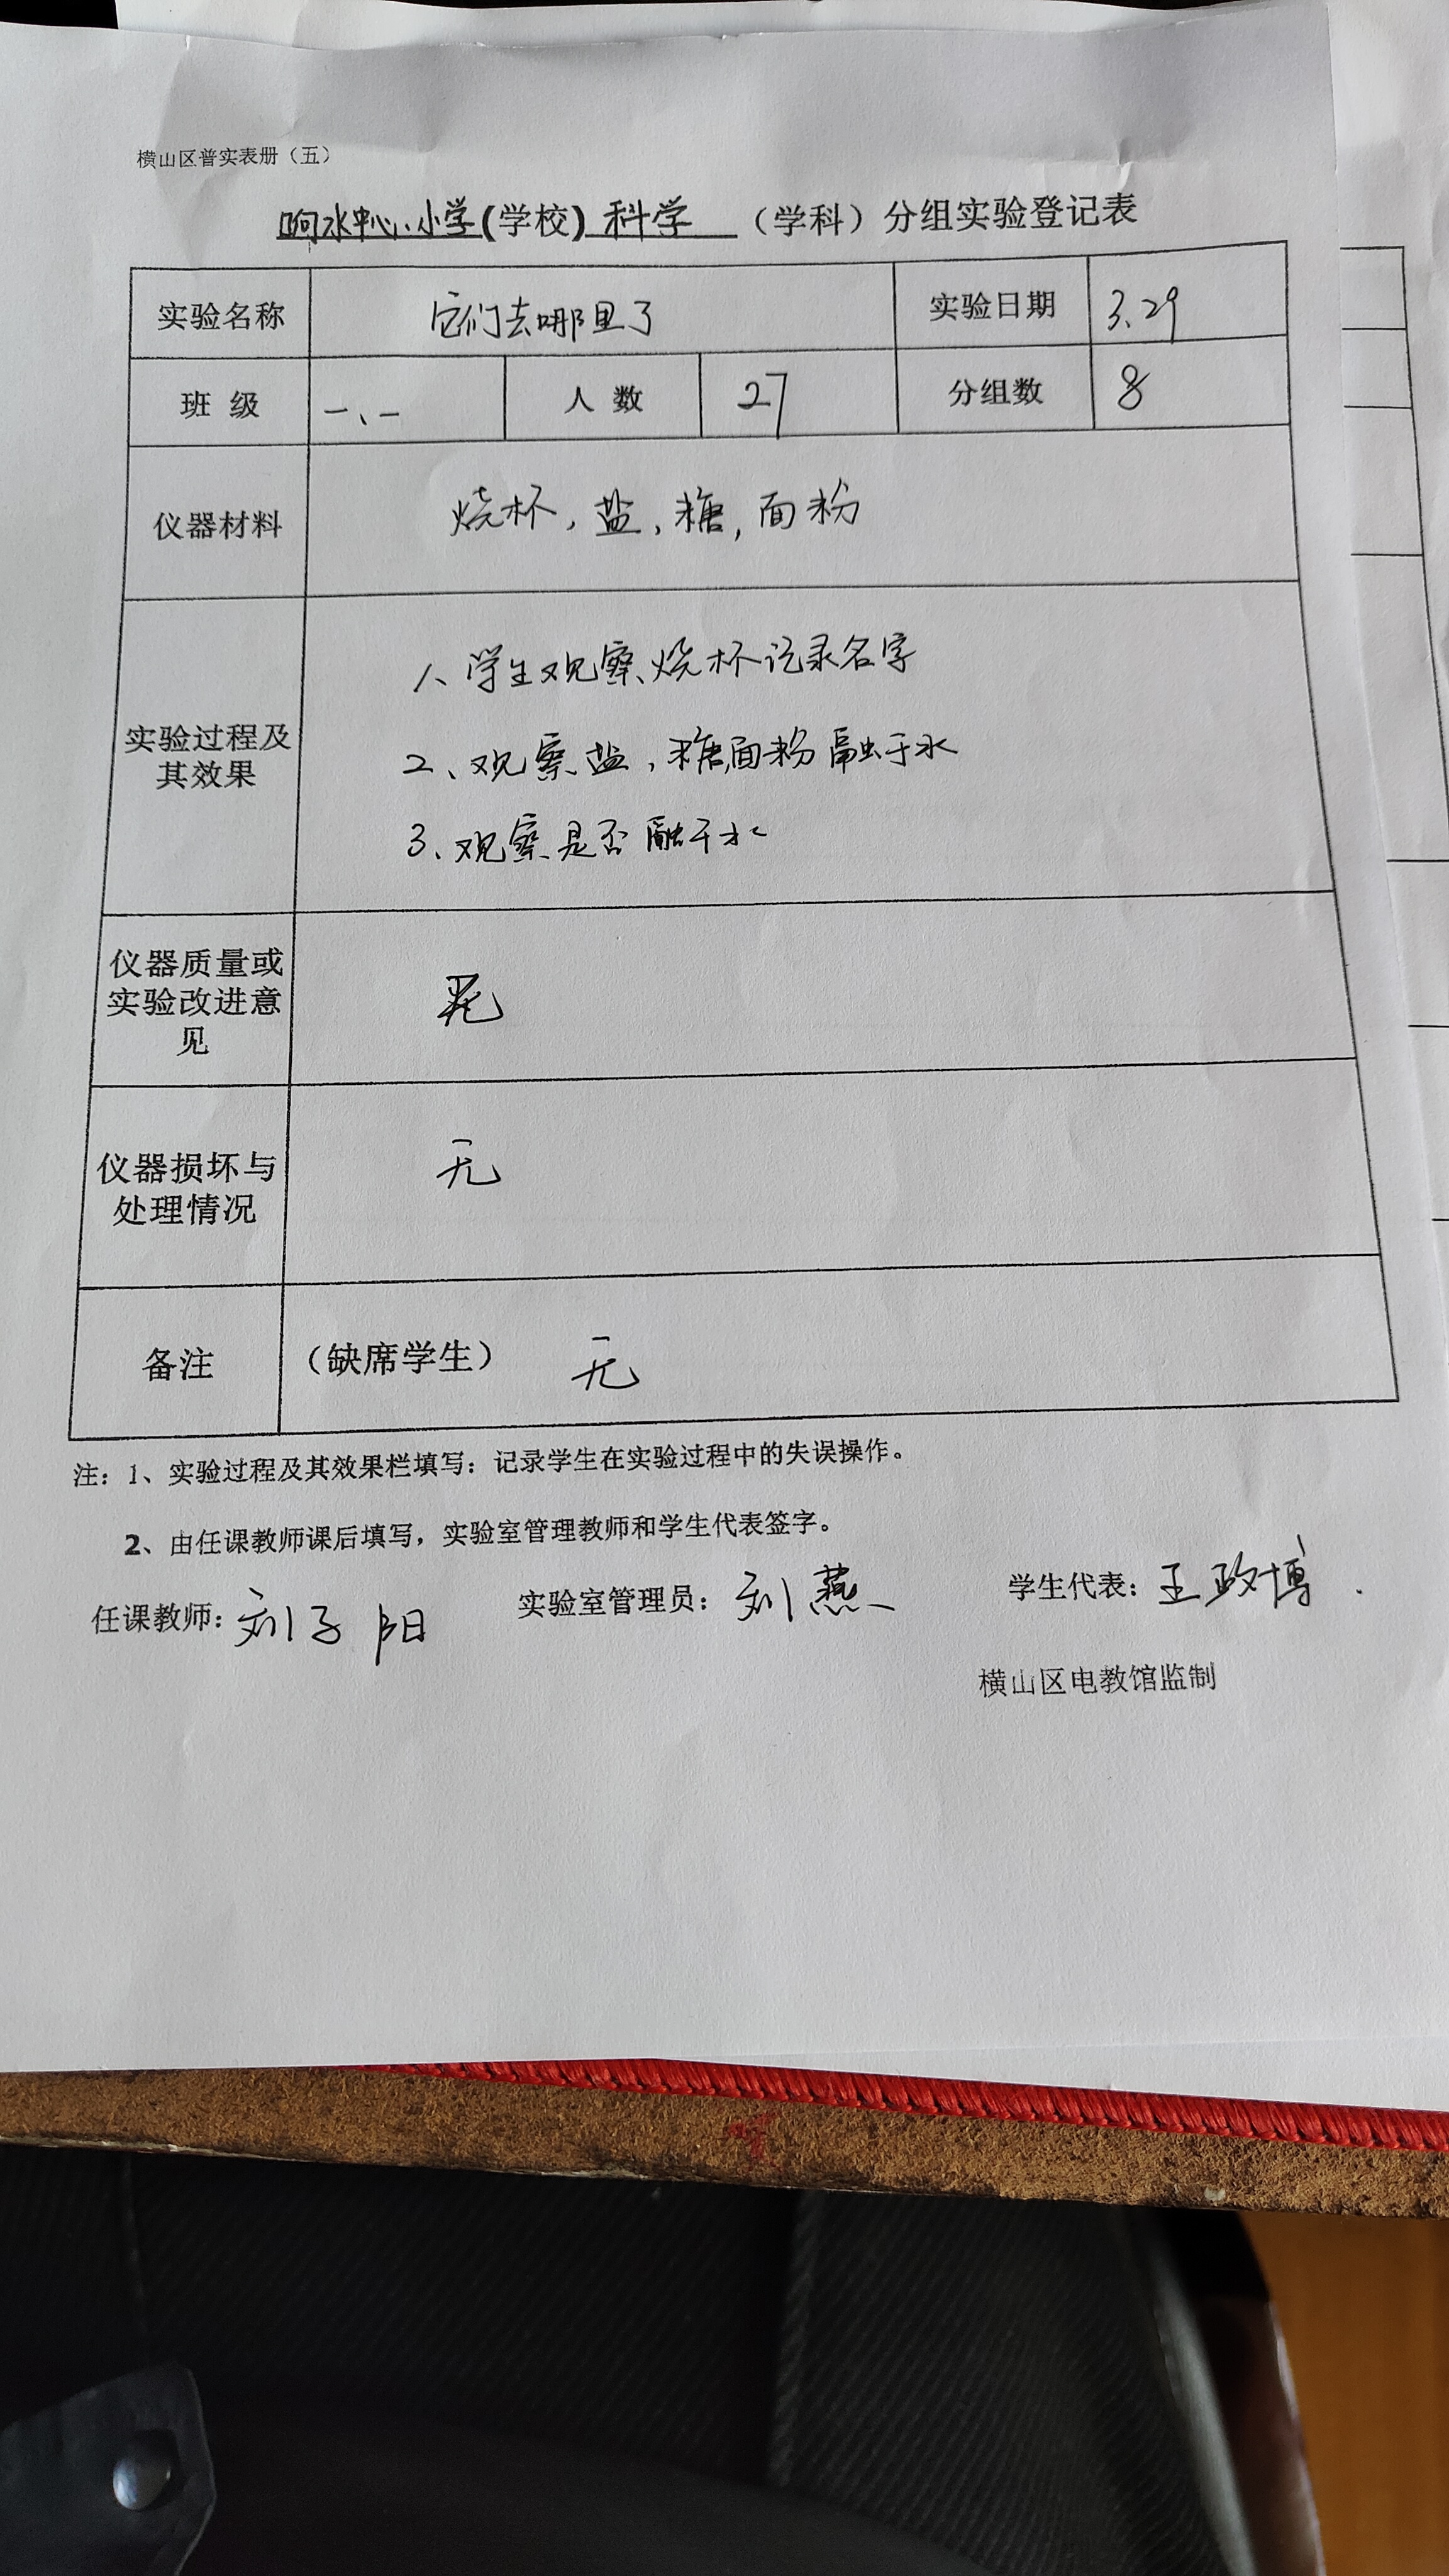 横山区普实表册（五）
响水中心小学(学校) 科学 （学科）分组实验登记表
实验名称 它们去哪里了 实验日期 3.29
班 级 一、一 人 数 27 分组数 8
仪器材料 烧杯，盐，糖，面粉
1、学生观察烧杯记录名字
实验过程及
其效果
2、观察盐，糖，面粉融于水
3、观察是否融于水
仪器质量或
实验改进意
见
无
仪器损坏与
处理情况
无
备注 （缺席学生） 无
注：1、实验过程及其效果栏填写：记录学生在实验过程中的失误操作。
2、由任课教师课后填写，实验室管理教师和学生代表签字。
任课教师：刘子阳 实验室管理员：刘燕 学生代表：王政博
横山区电教馆监制